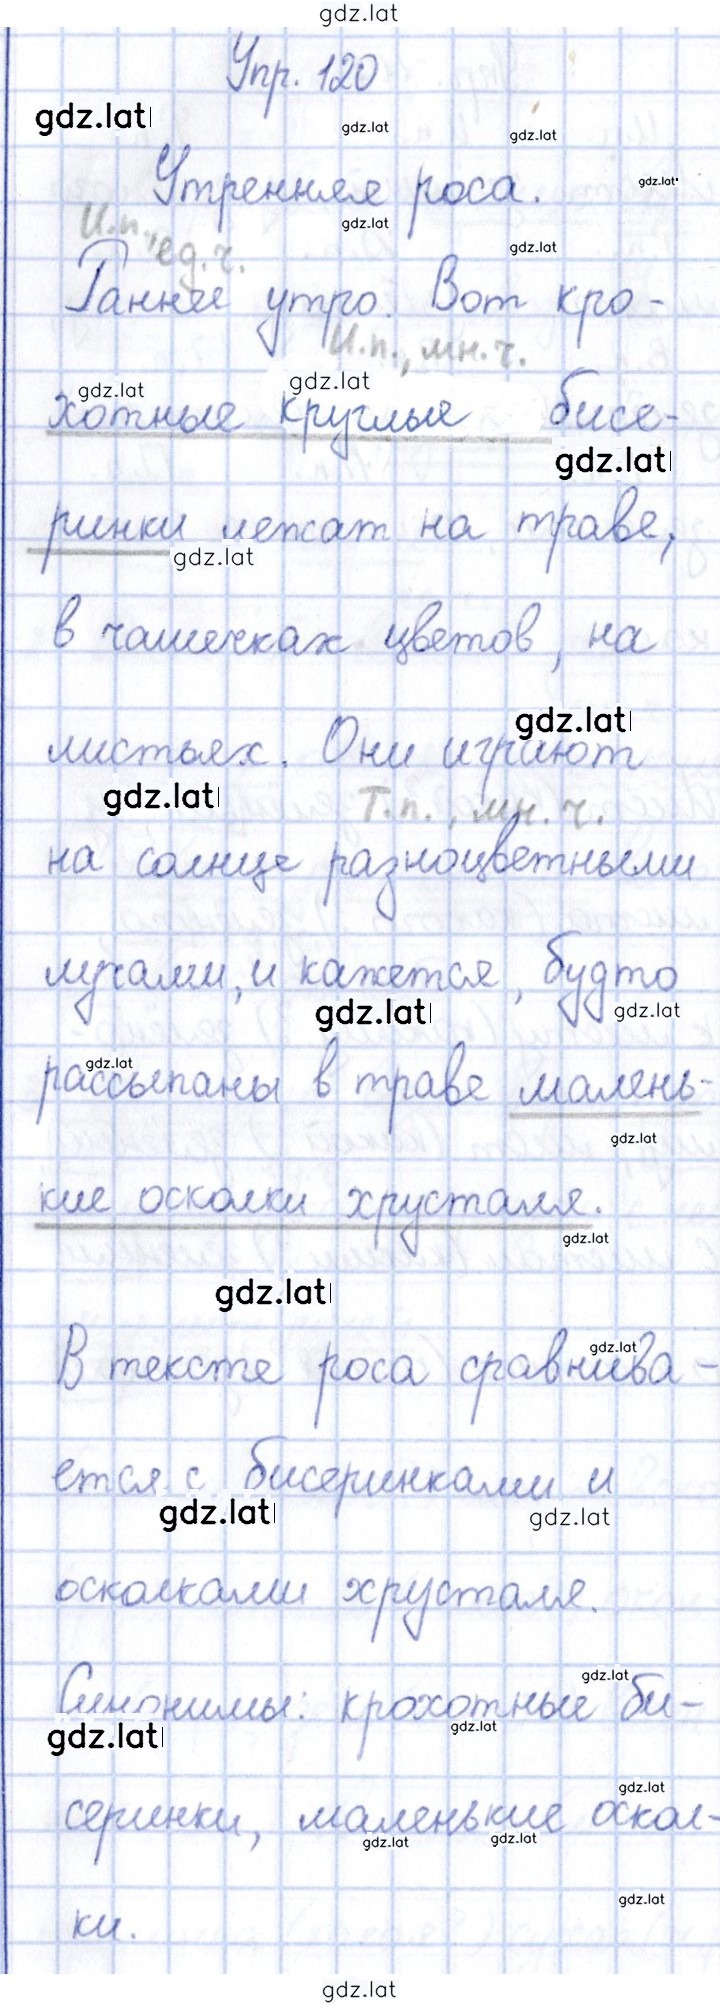 gdz.lat
Упр. 120
gdz.lat
gdz.lat
gdz.lat
Утренняя роса.
gdz.lat
gdz.lat
gdz.lat
И.п., ед. ч.
Раннее утро. Вот кро-
И.п., мн. ч.
gdz.lat
gdz.lat
хотные круглые бисе-
gdz.lat
ринки лежат на траве,
gdz.lat
в чашечках цветов, на
gdz.lat
листьях. Они играют
gdz.lat
Т.п., мн. ч.
на солнце разноцветными
лучами, и кажется, будто
gdz.lat
gdz.lat
gdz.lat
рассыпаны в траве малень-
gdz.lat
кие осколки хрусталя.
gdz.lat
gdz.lat
gdz.lat
В тексте роса сравнива-
ется с бисеринками и
gdz.lat
gdz.lat
осколками хрусталя.
gdz.lat
Синонимы: крохотные би-
gdz.lat
gdz.lat
gdz.lat
серинки, маленькие оскол-
gdz.lat
gdz.lat
gdz.lat
ки.
gdz.lat